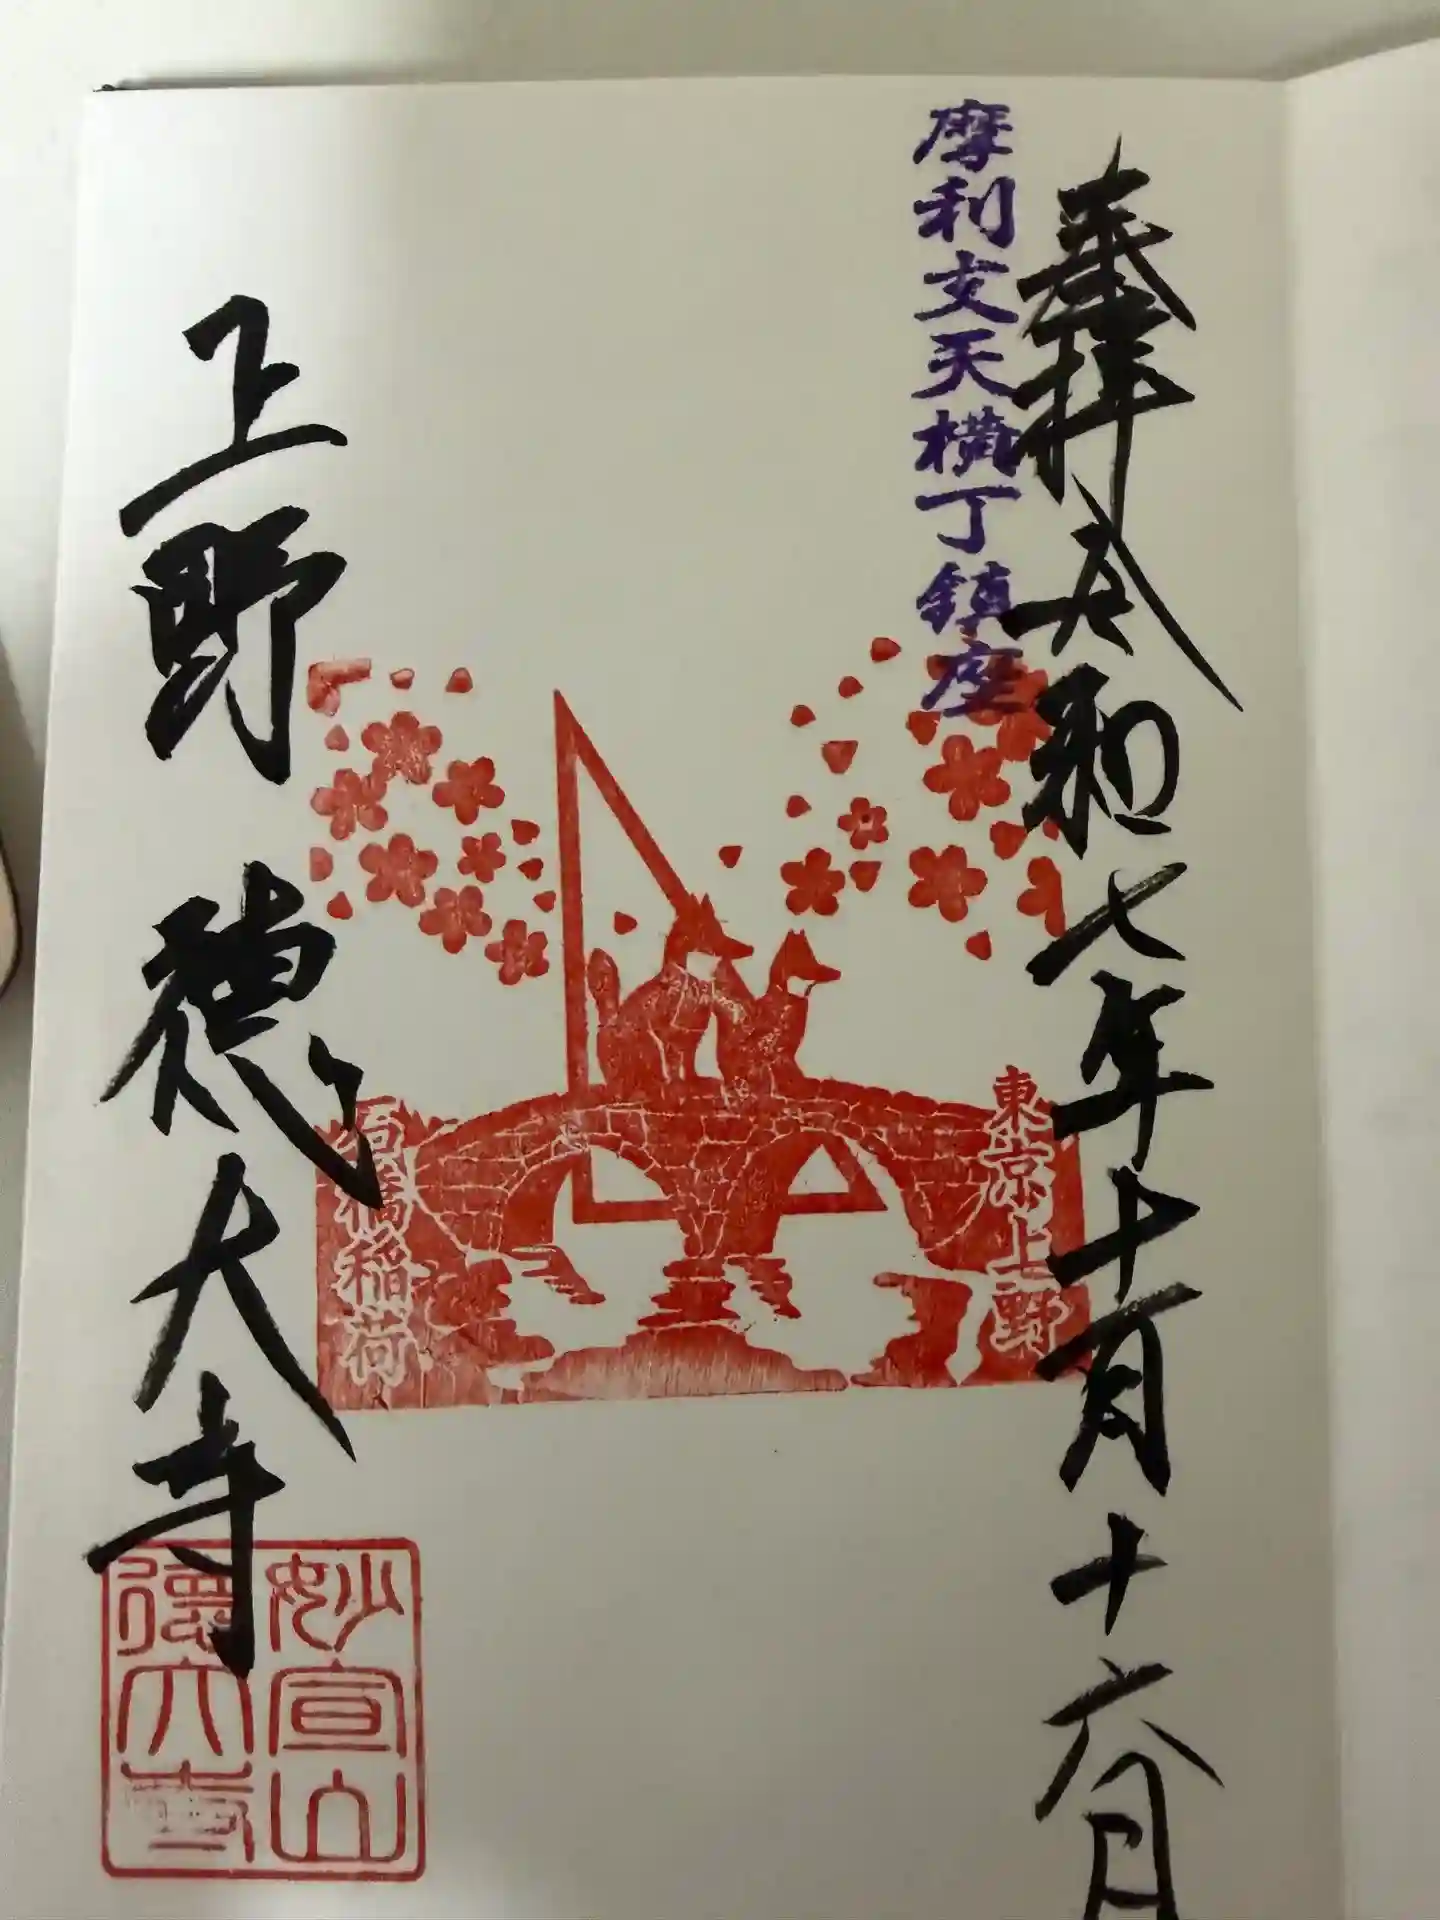 奉拝 令和七年十一月十六日
摩利支天横丁鎮座
東京上野
石橋稲荷
上野 徳大寺
妙宣山
徳大寺